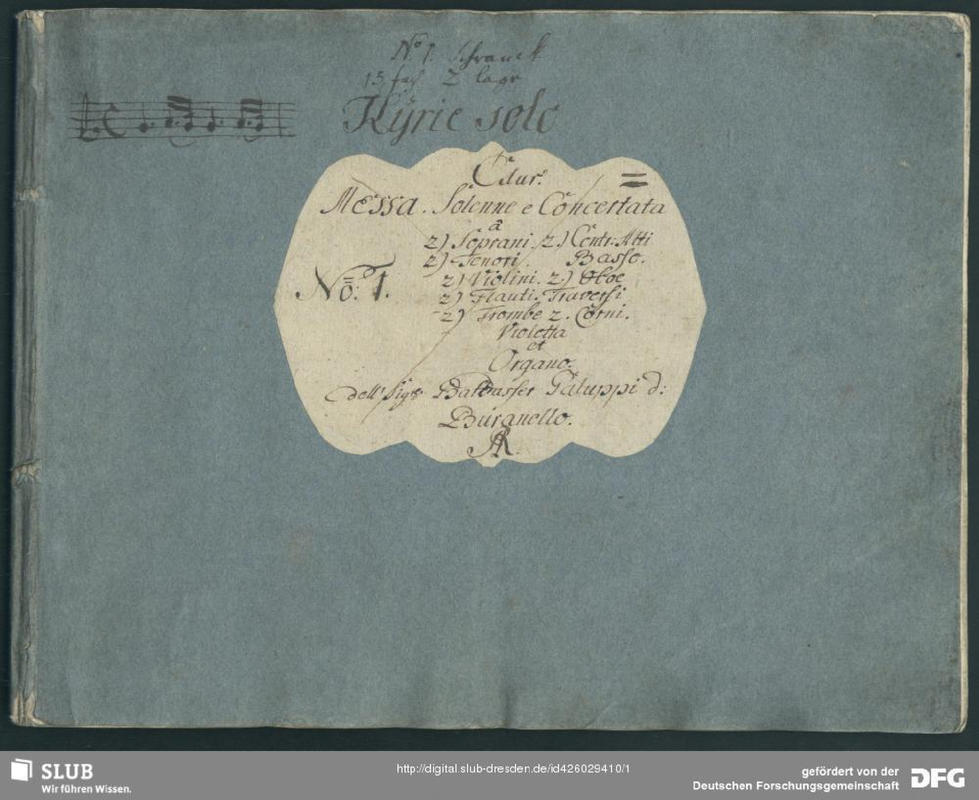 No 1. Schranck
15 fach 2 lage
Kÿrie solo
C dur.
Messa. Solenne e Concertata
a
2) Soprani. 2.) Contr: Alti
2) Tenori. Basso.
No: 1.
2) Violini. 2.) Oboe
2) Flauti. Traversi
2) Trombe 2. Corni.
Violetta
et
Organo.
dell' Sigr. Baldasser Galuppi d:
Buranello.
SLUB
Wir führen Wissen.
http://digital.slub-dresden.de/id426029410/1
gefördert von der
Deutschen Forschungsgemeinschaft
DFG